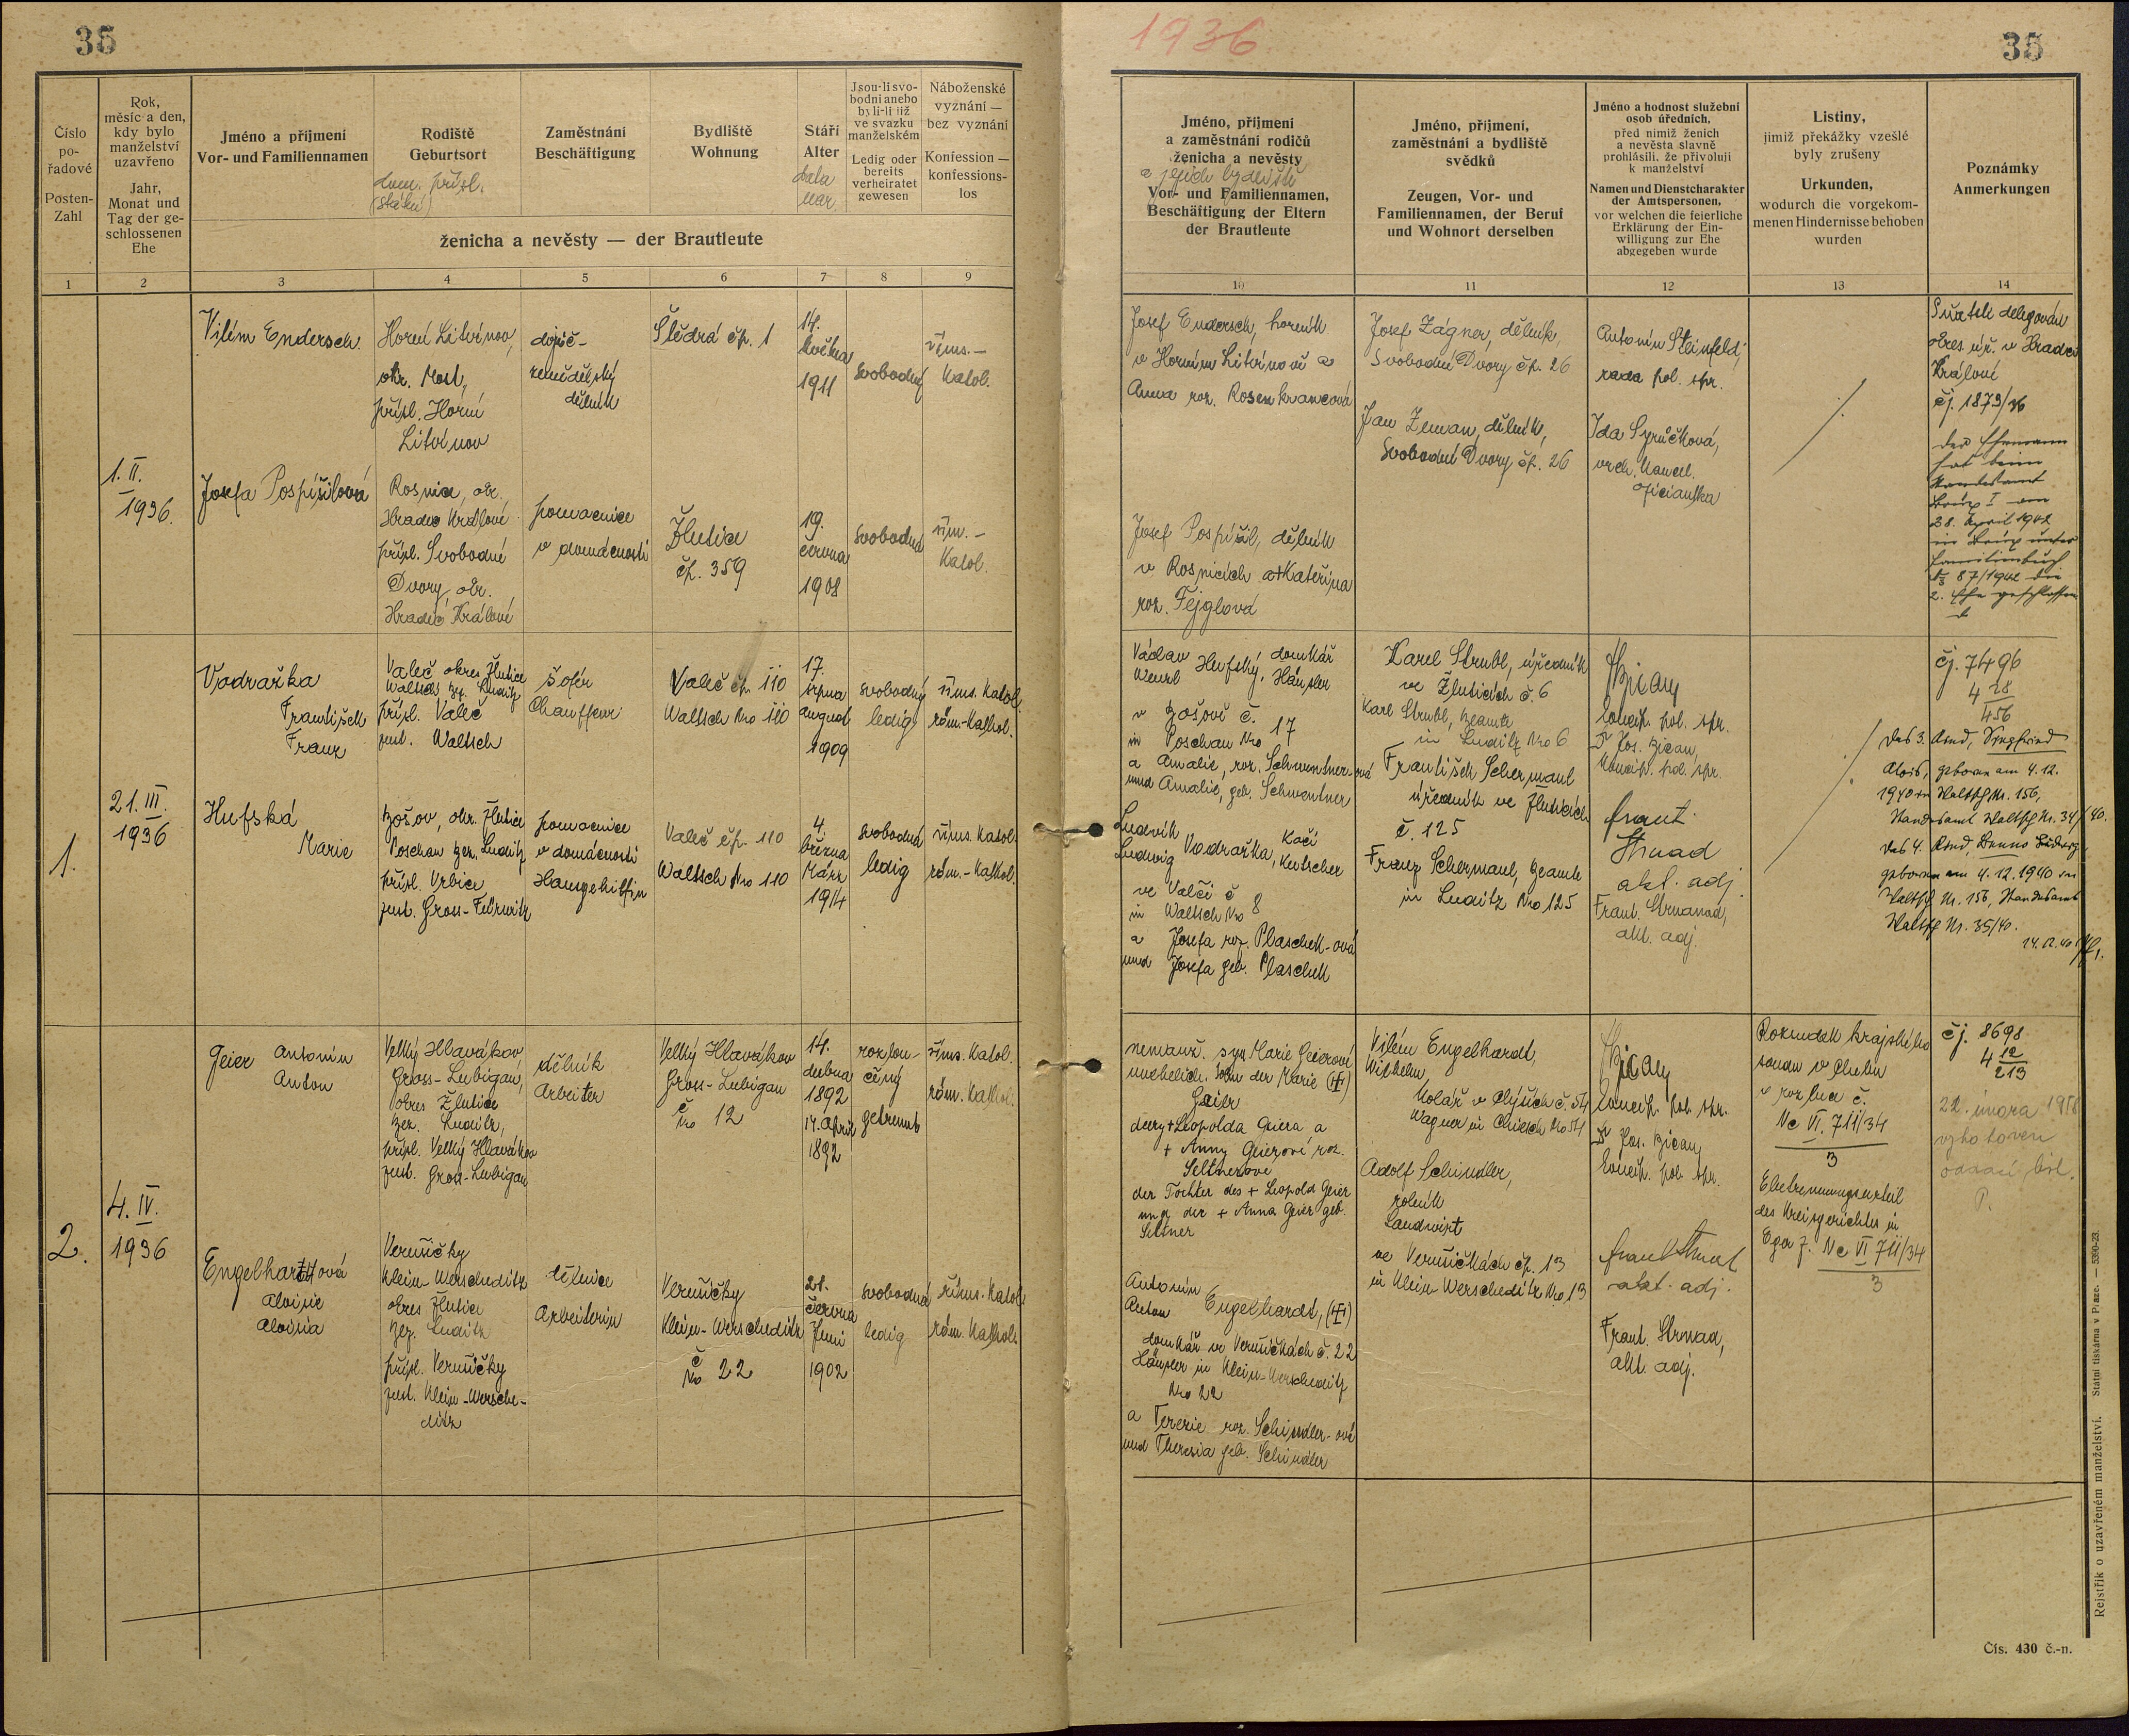 35
1936
35
Číslo
po-
řadové
Posten-
Zahl
Rok,
měsíc a den,
kdy bylo
manželství
uzavřeno
Jahr,
Monat und
Tag der ge-
schlossenen
Ehe
Jméno a příjmení
Vor- und Familiennamen
Rodiště
Geburtsort
dom. přísl.
(státní)
Zaměstnání
Beschäftigung
Bydliště
Wohnung
Stáří
Alter
data
nar.
Jsou-li svo-
bodni anebo
byli-li již
ve svazku
manželském
Ledig oder
bereits
verheiratet
gewesen
Náboženské
vyznání —
bez vyznání
Konfession —
konfessions-
los
ženicha a nevěsty — der Brautleute
Jméno, příjmení
a zaměstnání rodičů
ženicha a nevěsty
a jejich bydliště
Vor- und Familiennamen,
Beschäftigung der Eltern
der Brautleute
Jméno, příjmení,
zaměstnání a bydliště
svědků
Zeugen, Vor- und
Familiennamen, der Beruf
und Wohnort derselben
Jméno a hodnost služební
osob úředních,
před nimiž ženich
a nevěsta slavně
prohlásili, že přivolují
k manželství
Namen und Dienstcharakter
der Amtspersonen,
vor welchen die feierliche
Erklärung der Ein-
willigung zur Ehe
abgegeben wurde
Listiny,
jimiž překážky vzešlé
byly zrušeny
Urkunden,
wodurch die vorgekom-
menen Hindernisse behoben
wurden
Poznámky
Anmerkungen
1 2 3 4 5 6 7 8 9 10 11 12 13 14
1. II.
1936.
Vilém Endersch.
Horní Litvínov,
okr. Most,
přísl. Horní
Litvínov
dojič-
zemědělský
dělník
Štědrá čp. 1
14.
května
1911
svobodný
řím.-
katol.
Josef Endersch, horník
v Horním Litvínově a
Anna roz. Rosenkrancová
Josef Zágner, dělník,
Svobodné Dvory čp. 26
Jan Zeman, dělník,
Svobodné Dvory čp. 26
Antonín Steinfeld,
rada pol. spr.
Ida Syrůčková,
vrch. kancel.
oficiantka
Sňatek delegován
okres. úř. v Hradci
Králové
čj. 1879/36
Der Ehemann
hat beim
Standesamt
Brüx I am
28. April 1942
in Brüx unter
Familienbuch
No 87/1942 die
2. Ehe geschlossen
Josefa Pospíšilová
Rosnice, okr.
Hradec Králové
přísl. Svobodné
Dvory, okr.
Hradec Králové
pomocnice
v domácnosti
Žlutice
čp. 359
19.
června
1908
svobodná
řím.-
katol.
Josef Pospíšil, dělník
v Rosnicích a Kateřina
roz. Fejglová
1.
21. III.
1936
Vodražka
František
Franz
Valeč okres Žlutice
Waltsch bez. Luditz
přísl. Valeč
zust. Waltsch
šofér
Chauffeur
Valeč čp. 110
Waltsch Nro 110
17.
srpna
August
1909
svobodný
ledig
řím. katol.
röm.-kathol.
Václav Hufský, domkář
Wenzl Häusler
v Bošově č. 17
in Poschau Nro
a Amalie, roz. Schwentner-ová
und Amalie, geb. Schwentner
Karel Strubl, úředník
ve Žluticích č. 6
Karl Strubl, Beamte
in Luditz Nro 6
František Schermaul
úředník ve Žluticích
č. 125
Franz Schermaul, Beamte
in Luditz Nro 125
koncip. pol. spr.
Dr Jos. Bican,
koncip. pol. spr.
Frant.
Strnad
akt. adj.
Frant. Strnad,
akt. adj.
čj. 7496
4 28
456
Das 3. Kind, Siegfried
Alois, geboren am 4.12.
1940 in Waltsch Nr. 156,
Standesamt Waltsch Nr. 34/40.
Das 4. Kind, Benno Ludwig
geboren am 4.12.1940 in
Waltsch Nr. 156, Standesamt
Waltsch Nr. 35/40.
14.12.40
Hufská
Marie
Bošov, okr. Žlutice
Poschau bez. Luditz
přísl. Vrbice
zust. Gross-Fürwitz
pomocnice
v domácnosti
Hausgehilfin
Valeč čp. 110
Waltsch Nro 110
4.
března
März
1914
svobodná
ledig
řím. katol.
röm.-kathol.
Ludvík Vodražka, kočí
Ludwig Kutscher
ve Valči č 8
in Waltsch No
a Josefa roz. Plaschek-ová
und Josefa geb. Plaschek
2.
4. IV.
1936
Geier Antonín
Anton
Velký Hlavákov
Gross-Lubigau,
okres Žlutice
bez. Luditz,
přísl. Velký Hlavákov
zust. Gross-Lubigau
dělník
Arbeiter
Velký Hlavákov
Gross-Lubigau
č
No 12
14.
dubna
1892
14. April
1892
rozlou-
čený
getrennt
řím. katol.
röm. kathol.
nemanž. syn Marie Geierové
unehelich. Sohn der Marie (+)
Geier
dcery + Leopolda Geiera a
+ Anny Geierové roz.
Seltnerové
der Tochter des + Leopold Geier
und der + Anna Geier geb.
Seltner
Vilém Engelhardt,
Wilhelm,
kolář v Chyších č. 54
Wagner in Chiesch No 54
Adolf Schindler,
rolník
Landwirt
ve Verušičkách čp. 13
in Klein Werscheditz Nro 13
koncip. pol. spr.
Dr Jos. Bican,
koncip. pol. spr.
Frant. Strnad
akt. adj.
Frant. Strnad,
akt. adj.
Rozsudek krajského
soudu v Chebu
o rozluce č.
Nc VI. 711/34
3
Ehetrennungsurteil
des Kreisgerichtes in
Eger Z. Nc VI 711/34
3
čj. 8698
4 12
213
22. února 1958
vyhotoven
oddací list.
P.
Engelhardtová
Aloisie
Aloisia
Verušičky
Klein-Werscheditz
okres Žlutice
bez. Luditz
přísl. Verušičky
zust. Klein-Wersche-
ditz
dělnice
Arbeiterin
Verušičky
Klein-Werscheditz
č
No 22
21.
června
Juni
1902
svobodná
ledig
řím. katol.
röm. kathol.
Antonín
Anton Engelhardt, (+)
domkář ve Verušičkách č. 22
Häusler in Klein-Werscheditz
Nro 22
a Terezie roz. Schindler-ové
und Theresia geb. Schindler
Rejstřík o uzavřeném manželství. Státní tiskárna v Praze. — 5390-23.
Čís. 430 č.-n.